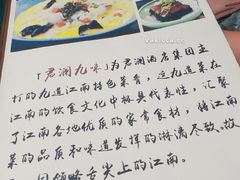 「君澜九味」为君澜酒店集团主
打的九道江南特色菜肴，这九道菜在
江南的饮食文化中极具代表性，汇聚
了江南各地优质的家常食材，将江南
菜的品质和味道发挥的淋漓尽致。故
领略舌尖上的江南。